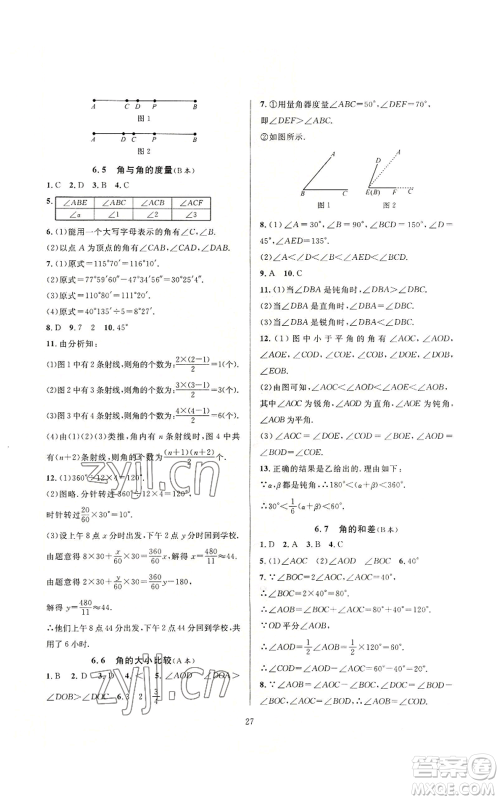 A C D P B
图 1
A C D P B
图 2
6.5 角与角的度量(B本)
1. C 2. D 3. B 4. C
5. ∠ABE ∠ABC ∠ACB ∠ACF
∠α ∠1 ∠2 ∠3
6. (1)能用一个大写字母表示的角有∠B,∠C.
(2)以点 A 为顶点的角有∠CAB,∠CAD,∠DAB.
7. (1)原式=115°70′=116°10′.
(2)原式=77°59′60″−47°34′56″=30°25′4″.
(3)原式=106°75′=107°15′.
(4)原式=40°40′÷5=8°8′.
8. D 9. 7 2 10. 45°
11. 由分析知:
(1)图 1 中有 2 条射线,则角的个数为:2×(2−1)/2=1(个).
(2)图 2 中有 3 条射线,则角的个数为:3×(3−1)/2=3(个).
(3)图 3 中有 4 条射线,则角的个数为:4×(4−1)/2=6(个).
(4)由(1)(2)(3)类推,角内有 n 条射线时,图中共有
(n+2)条射线,则角的个数为(n+1)(n+2)/2个.
12. (1)360°÷12×4=120°.
(2)图略. 分针转过360°÷60×20=120°,
时针转过20/60×360°/12=10°.
(3)设上午 8 点 x 分时出发,下午 2 点 y 分时回到学校,
由题意得 8×30+x/60×30=360/60x,
解得 x=480/11≈44.
由题意得 2×30+y/60×30=360/60y−180,
解得 y=480/11≈44.
∴他们上午 8 点 44 分出发,下午 2 点 44 分回到学校,
共用了 6 小时.
6.6 角的大小比较(A本)
1. B 2. B 3. D 4. < 5. ∠AOD ∠DOA>
∠DOB>∠DOC 6. 3 2 3/4
7. ①用量角器度量∠ABC=50°,∠DEF=70°,
即∠DEF>∠ABC.
②如图所示.
A
B C
图 1
D A
E(B) F C
图 2
8. (1)∠A=30°,∠B=65°,∠C=85°,∠DEC=50°,
∠AED=130°,∠ADE=20°.
(2)∠A<∠DEC<∠B<∠C<∠AED.
9. A 10. C
11. (1)当∠DBA 是钝角时,∠DBA>∠DBC.
(2)当∠DBA 是直角时,∠DBA=∠DBC.
(3)当∠DBA 是锐角时,∠DBA<∠DBC.
12. (1)图中小于平角的角有∠AOC,∠AOD,
∠AOE,∠COD,∠COE,∠COB,∠DOE,∠DOB,
∠EOB.
(2)由图可知,∠AOC<∠AOD<∠AOE<∠AOB,
其中∠AOC 为锐角,∠AOD 为直角,∠AOE 为钝角,
∠AOB 为平角.
(3)∠AOC=∠DOE,∠AOD=∠BOD,∠COD=
∠BOE,∠AOE=∠COB.
13. 正确的结果是乙给出的. 理由如下:
∵α,β都是钝角,∴180°<α+β<360°,
∴30°<1/6(α+β)<60°.
6.7 角的和差(B本)
1. D 2. A 3. B 4. C
5. (1)∠AOC (2)∠AOD ∠BOC 6. 40°
7. ∵∠BOC=2∠AOC,∠AOC=40°,
∴∠BOC=2×40°=80°,
∴∠AOB=∠BOC+∠AOC=80°+40°=120°.
∵OD 平分∠AOB,
∴∠AOD=1/2∠AOB=1/2×120°=60°,
∴∠COD=∠AOD−∠AOC=60°−40°=20°.
8. ∵∠AOB=∠AOC+∠BOC,∠COD=∠BOD+
∠BOC,∠AOB=∠COD,
∴∠AOC=∠BOD.
27
zyjl.cn
zyjl.cn
答案圈
MXQE.COM